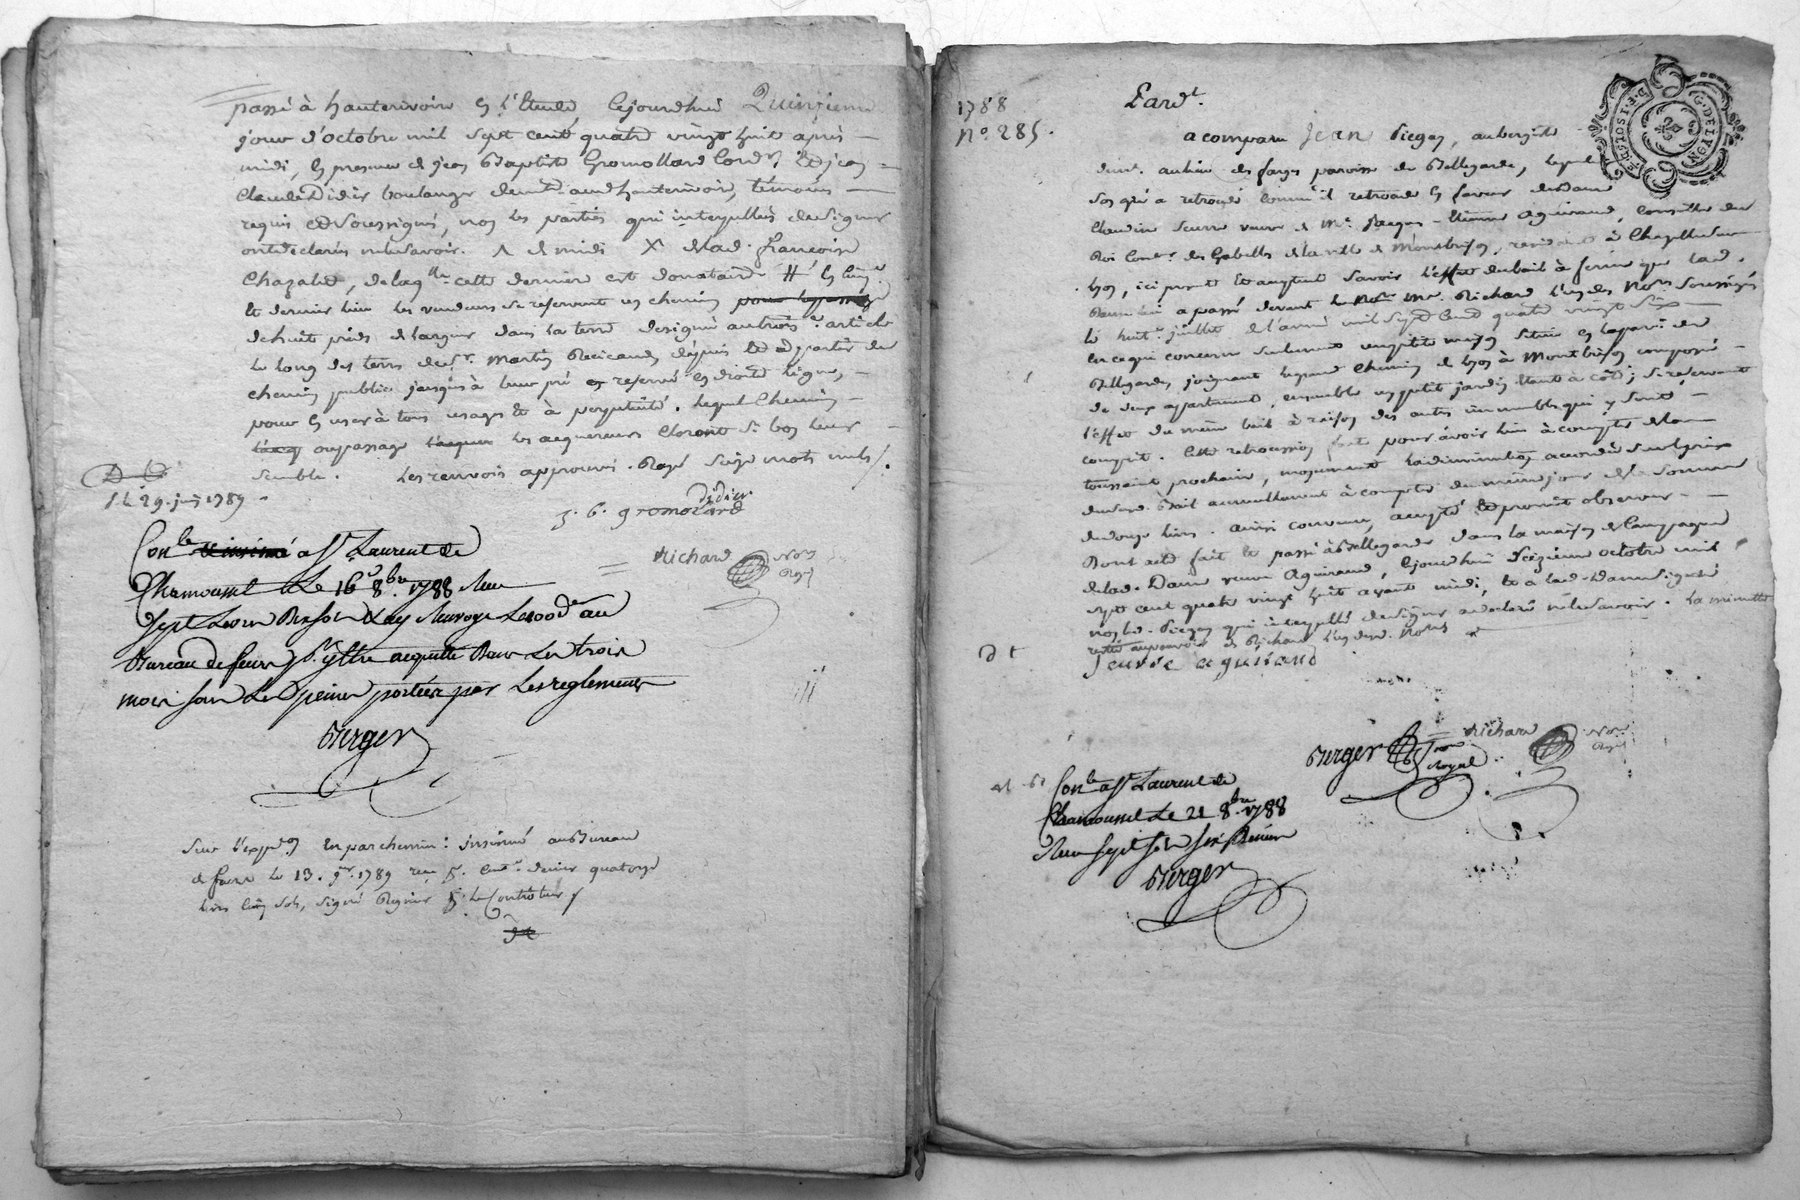 passé à hauterivoire en l'Etude, Cejourdhui Quinzieme
jour d'octobre mil sept cent quatre vingt huit après
midi, en presence de jean Baptiste Gromollard Cord.r & jean
Claude Didier boulanger demt. aud hauterivoire, témoins
requis & Soussignés, non les parties qui interpellées de Signer
ont declarés ne le Savoir. de midi X de lad. françoise
Chazalet, de laqlle cette derniere est donataire # En
dernier lieu les vendeurs se reservent un chemin pour
de huit pieds de largeur dans la terre designée article
le long des terres de Sr. Martin depuis & a partir du
chemin public jusqu'à leur pré reservé en droite ligne,
pour en user à tous usages & à perpetuité. Lequel Chemin
ou passage les acquereurs Cloront Si bon leur
Semble. Les renvois approuvés. Rayé Seize mots nuls
D
1789
didier
j. b. gromolard
Richard Nore
Conlé a St Laurent de
Chamousset Le 16 8bre 1788 Reçu
Sept Livres
Bureau de feurs pr. être acquitté Dans Les trois
mois sous Les peines portées par Les reglements
Berger
Sur l'exp.on En parchemin: insinué au Bureau
de feurs le 13. 1789 reçu quatorze
livres Cinq Sols, signé Le Controleur
1788
No. 285.
G. DE LYON
Pardt.
a comparu Jean Piegay, aubergiste
demt. au lieu des farges paroisse de Bellegarde, lequel
de son gré a retrocedé comme il retrocede en faveur de Dame
Claudine veuve de Me. Jacques Etienne Aguiraud, Conseiller du
Roi des Gabelles de la ville de Montbrison, residente à Chazelles sur
Lyon, ici presente & acceptant Savoir l'effet du bail à ferme que lad.
Dame lui a passé devant Me. Richard l'un des Nores Soussignés
le huit juillet de l'année mil Sept Cent quatre vingt Six
en ce qui concerne Seulement une petite maison Située en la parse. de
Bellegarde, joignant le grand Chemin de Lyon à Montbrison composée
de deux appartements, ensemble un petit jardin étant à côté; se reservant
l'effet du même bail à raison des autres immeubles qui y Sont
compris. Cette retrocession fait pour avoir lieu à compter de la
toussaint prochaine, moyennant la diminution accordée Sur le prix
du Susd. Bail annuellement à compter du même jour de la Somme
de douze livres. ainsi convenu, accepté & promit observer
Dont acte fait & passé à Bellegarde dans la maison de Campagne
de lad. Dame veuve Aguiraud, Cejourdhui Seizieme octobre mil
Sept cent quatre vingt huit avant midi, & a lad. Dame Signé
non led. Piegay qui interpellé de Signer a declaré ne le Savoir. La minute
restée au pouvoir de Richard l'un desd. Nores
veuve aguiraud
Berger nore Royal
Richard Nore
Conlé a St Laurent de
Chamousset Le 21 8bre 1788
Reçu Sept Sols Six Deniers
Berger